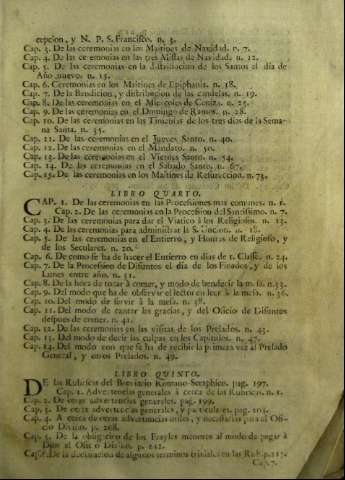 cepcion, y N. P. S. Francisco. n. 3.
Cap. 3. De las ceremonias en los Maitines de Navidad. n. 7.
Cap. 4. De las ceremonias en las tres Missas de Navidad. n. 12.
Cap. 5. De las ceremonias en la distribucion de los Santos al dia de
Año nuevo. n. 15.
Cap. 6. Ceremonias en los Maitines de Epiphania. n. 18.
Cap. 7. De la Bendicion, y distribucion de las candelas. n. 19.
Cap. 8. De las ceremonias en el Miercoles de Ceniza. n. 25.
Cap. 9. De las ceremonias en el Domingo de Ramos. n. 28.
Cap. 10. De las ceremonias en las Tinieblas de los tres dias de la Sema-
na Santa. n. 35.
Cap. 11. De las ceremonias en el Jueves Santo. n. 40.
Cap. 12. De las ceremonias en el Mandato. n. 50.
Cap. 13. De las ceremonias en el Viernes Santo. n. 54.
Cap. 14. De las ceremonias en el Sabado Santo. n. 67.
Cap. 15. De las ceremonias en los Maitines de Resurreccion. n. 73.
LIBRO QUARTO.
CAP. 1. De las ceremonias en las Procesiones mas comunes. n. 1.
Cap. 2. De las ceremonias en la Procesion del Santisimo. n. 7.
Cap. 3. De las ceremonias para dar el Viatico à los Religiosos. n. 13.
Cap. 4. De las ceremonias para administrar la S. Uncion. n. 18.
Cap. 5. De las ceremonias en el Entierro, y Honras de Religioso, y
de los Seculares. n. 20.
Cap. 6. De como se ha de hacer el Entierro en dias de 1. Classe. n. 24.
Cap. 7. De la Procesion de Difuntos el dia de los Finados, y de los
Lunes entre año. n. 31.
Cap. 8. De la hora de tocar à comer, y modo de bendecir la mesa. n. 33.
Cap. 9. Del modo que ha de observar el lector en leer à la mesa. n. 36.
Cap. 10. Del modo de servir à la mesa. n. 38.
Cap. 11. Del modo de cantar las gracias, y del Oficio de Difuntos
despues de comer. n. 41.
Cap. 12. De las ceremonias en las visitas de los Prelados. n. 43.
Cap. 13. Del modo de decir las culpas en los Capitulos. n. 47.
Cap. 14. Del modo con que se ha de recibir la primera vez al Prelado
General, y otros Prelados. n. 49.
LIBRO QUINTO.
DE las Rubricas del Breviario Romano-Seraphico. pag. 197.
Cap. 1. Advertencias generales à cerca de las Rubricas. n. 1.
Cap. 2. De otras advertencias generales. pag. 199.
Cap. 3. De otras advertencias generales, y particulares. pag. 203.
Cap. 4. A cerca de otras advertencias utiles, y necesarias para el Ofi-
cio Divino. p. 208.
Cap. 5. De la obligacion de los Frayles menores al modo de pagar à
Dios el Oficio Divino. p. 212.
Cap. 6. De la declaracion de algunos terminos en las Rub. p. 215.
Cap. 7.